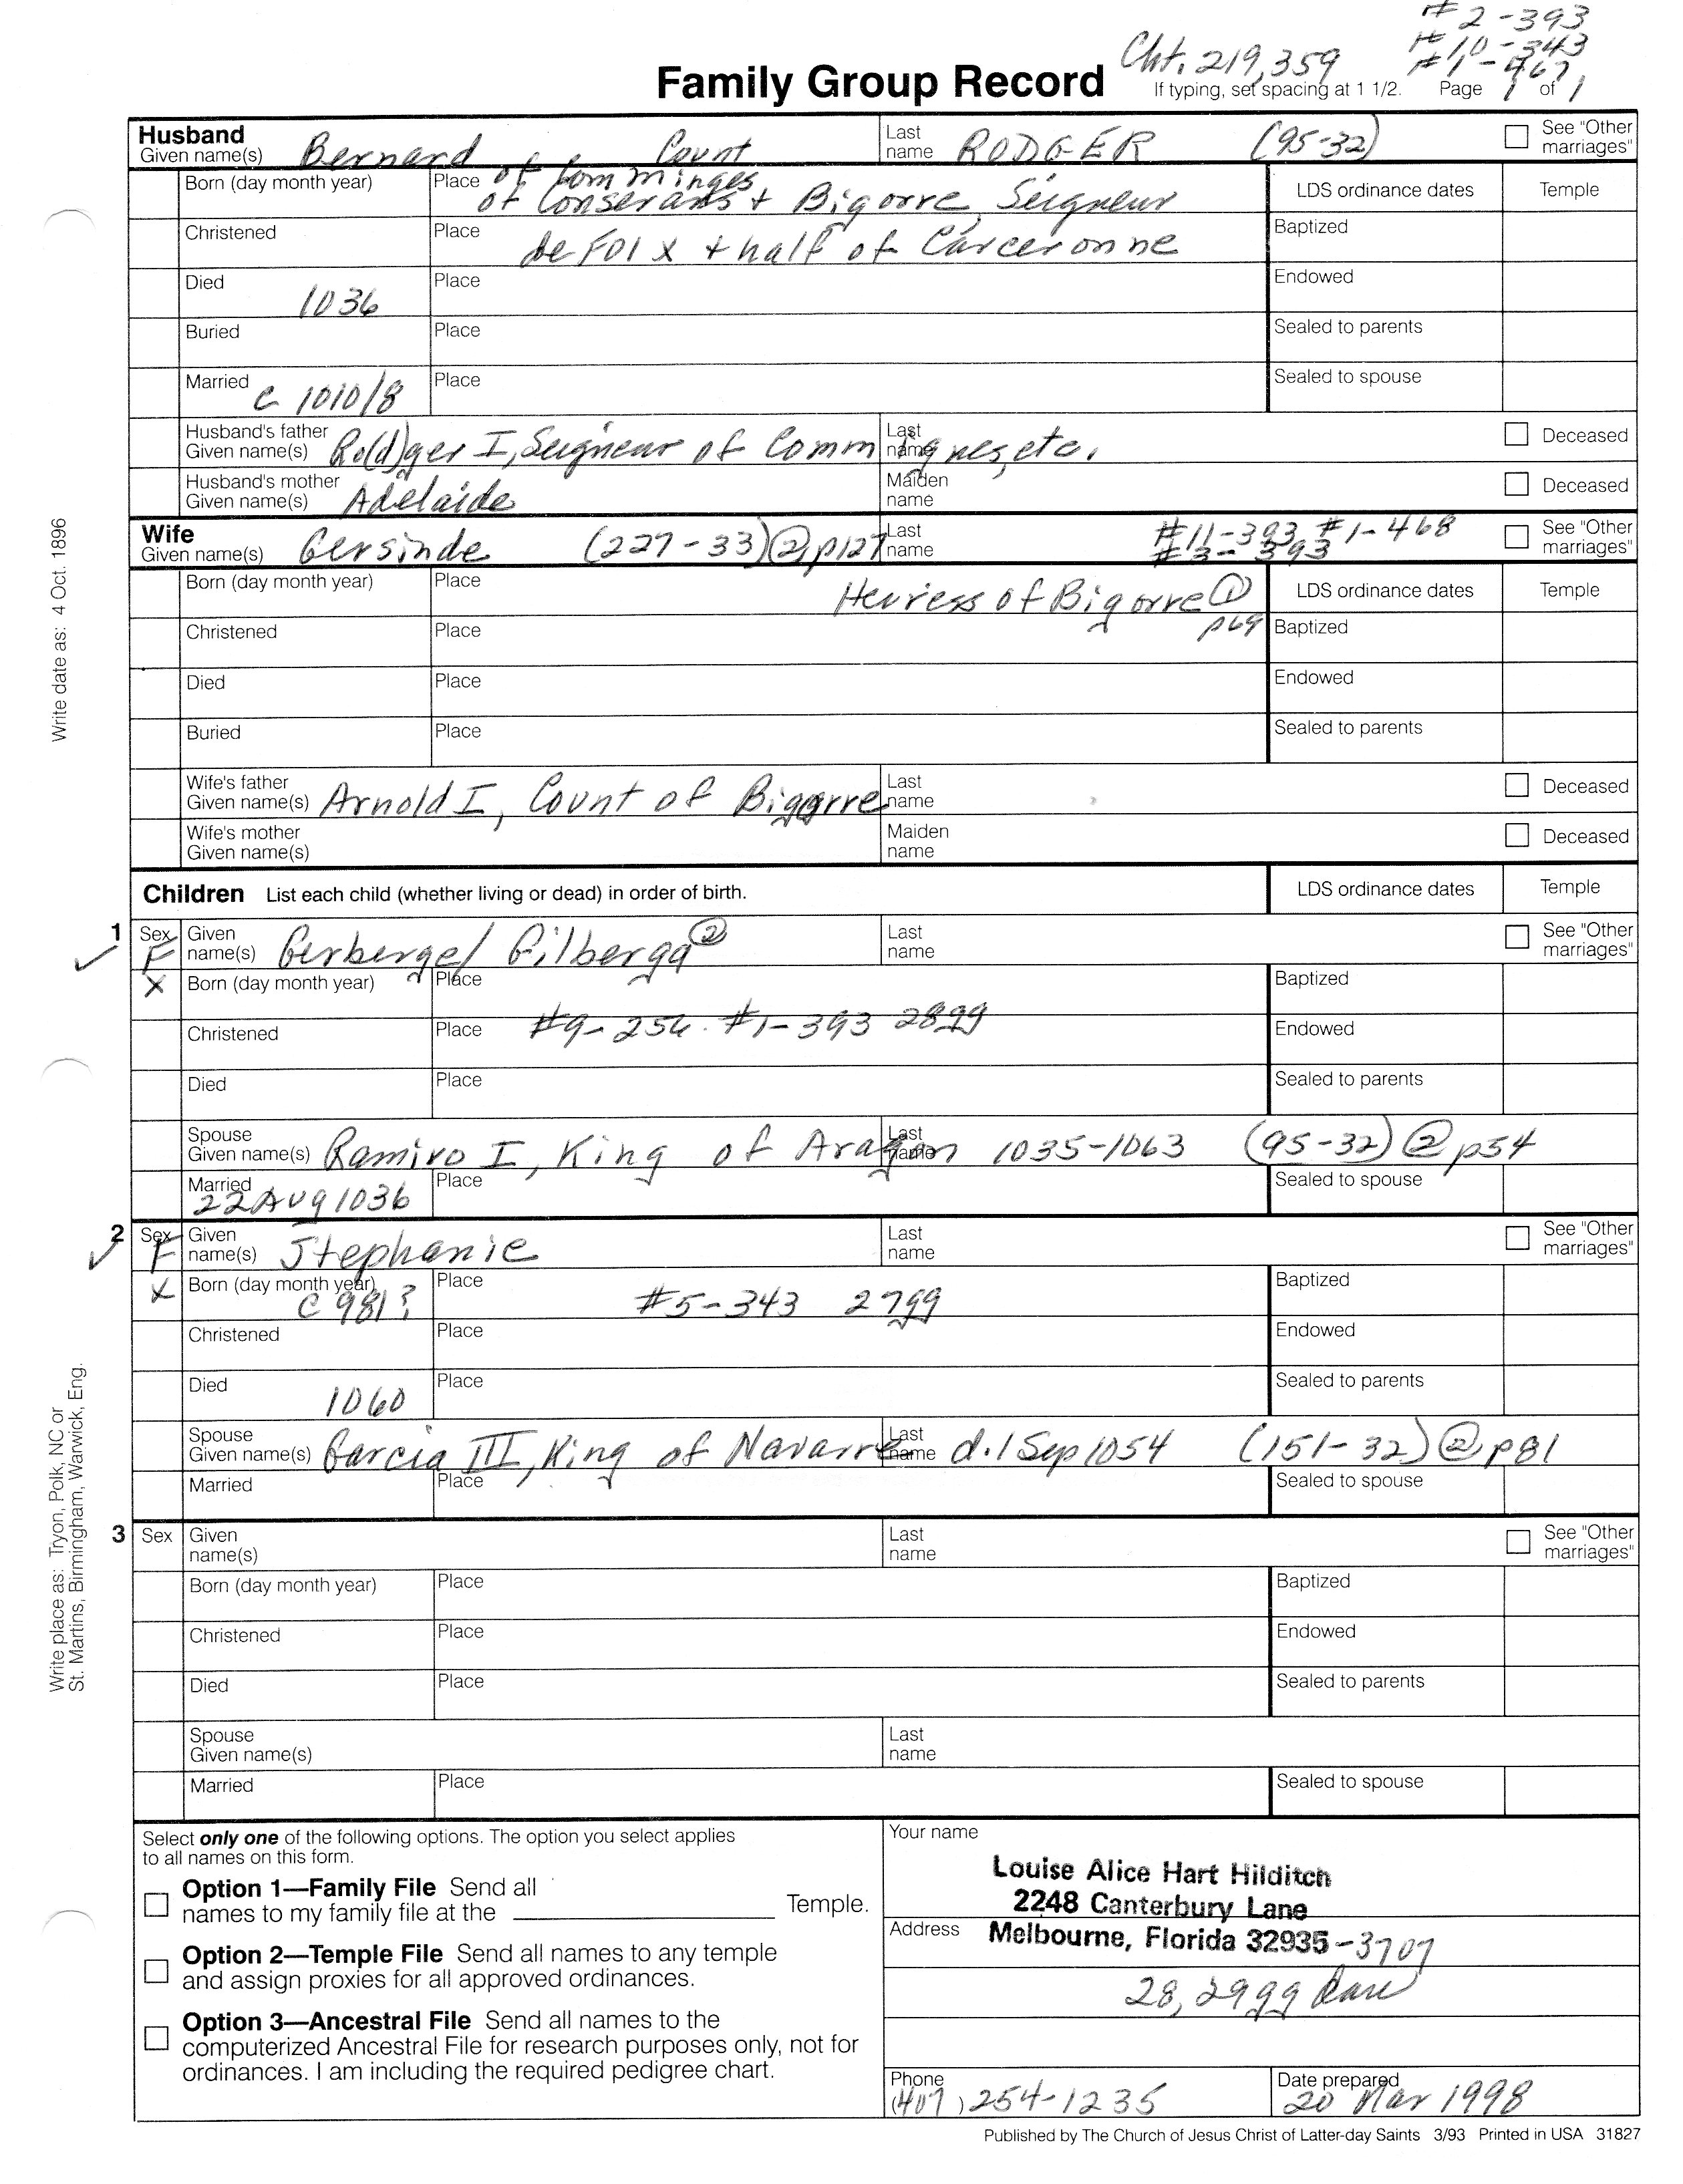 # 2 - 393
Cht. 219,359 # 10 - 343
Family Group Record # 1 - 467
If typing, set spacing at 1 1/2. Page 1 of 1
Husband
Given name(s) Bernard Count Last name RODGER (95-32) See "Other marriages"
Born (day month year) Place of Comminges
of Conserans + Bigorre, Seigneur LDS ordinance dates Temple
Christened Place de FOIX + half of Carceronne Baptized
Died 1036 Place Endowed
Buried Place Sealed to parents
Married c 1010/8 Place Sealed to spouse
Husband's father Given name(s) Ro(d)ger I, Seigneur of Commignes, etc. Last name Deceased
Husband's mother Given name(s) Adelaide Maiden name Deceased
Wife
Given name(s) Gersinde (227-33) ②, p127 Last name # 11-393 # 1-468 See "Other marriages"
# 3- 393
Born (day month year) Place Heiress of Bigorre ① LDS ordinance dates Temple
Christened Place p69 Baptized
Died Place Endowed
Buried Place Sealed to parents
Wife's father Given name(s) Arnold I, Count of Bigorre Last name Deceased
Wife's mother Given name(s) Maiden name Deceased
Children List each child (whether living or dead) in order of birth. LDS ordinance dates Temple
1 Sex F Given name(s) Gerberge/ Gilberga ② Last name See "Other marriages"
X Born (day month year) Place Baptized
Christened Place #9-256. #1-393 28gg Endowed
Died Place Sealed to parents
Spouse Given name(s) Ramiro I, King of Aragon Last name 1035-1063 (95-32) ② p54
Married 22 Aug 1036 Place Sealed to spouse
2 Sex F Given name(s) Stephanie Last name See "Other marriages"
X Born (day month year) c 981? Place #5-343 27gg Baptized
Christened Place Endowed
Died 1060 Place Sealed to parents
Spouse Given name(s) Garcia III, King of Navarre Last name d. 1 Sep 1054 (151-32) ②, p81
Married Place Sealed to spouse
3 Sex Given name(s) Last name See "Other marriages"
Born (day month year) Place Baptized
Christened Place Endowed
Died Place Sealed to parents
Spouse Given name(s) Last name
Married Place Sealed to spouse
Select only one of the following options. The option you select applies
to all names on this form.
Option 1—Family File Send all
names to my family file at the Temple.
Option 2—Temple File Send all names to any temple
and assign proxies for all approved ordinances.
Option 3—Ancestral File Send all names to the
computerized Ancestral File for research purposes only, not for
ordinances. I am including the required pedigree chart.
Your name
Louise Alice Hart Hilditch
2248 Canterbury Lane
Address Melbourne, Florida 32935-3707
28, 29gg
Phone (407) 254-1235
Date prepared 20 Mar 1998
Published by The Church of Jesus Christ of Latter-day Saints 3/93 Printed in USA 31827
Write date as: 4 Oct. 1896
Write place as: Tryon, Polk, NC or
St. Martins, Birmingham, Warwick, Eng.